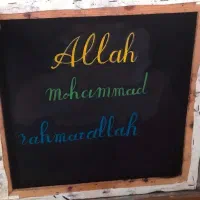 Allah
mohammad
rahmatallah